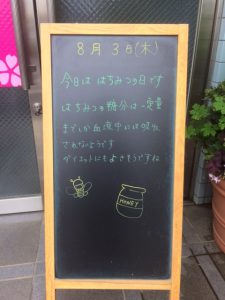 8月3日(木)
今日は はちみつの日です
はちみつの糖分は一定量
までしか血液中には吸収
されないようです
ダイエットにもよさそうですね
HONEY